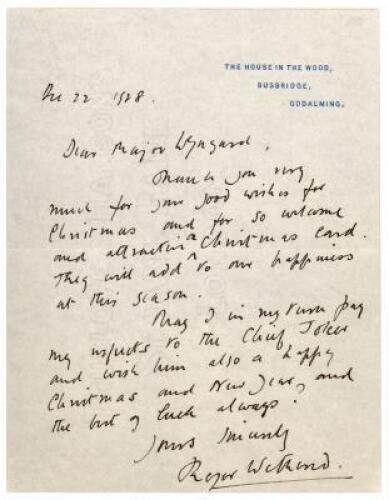 THE HOUSE IN THE WOOD,
BUSBRIDGE,
GODALMING.
Dec 22 1928.
Dear Major Wyngard,
Thank you very
much for your good wishes for
Christmas and for so welcome
and attractive a Christmas card.
They will add to our happiness
at this season.
May I in my turn pay
my respects to the Chief Joker
and wish him also a happy
Christmas and New Year, and
the best of luck always.
Yours sincerely
Roger Wethered.